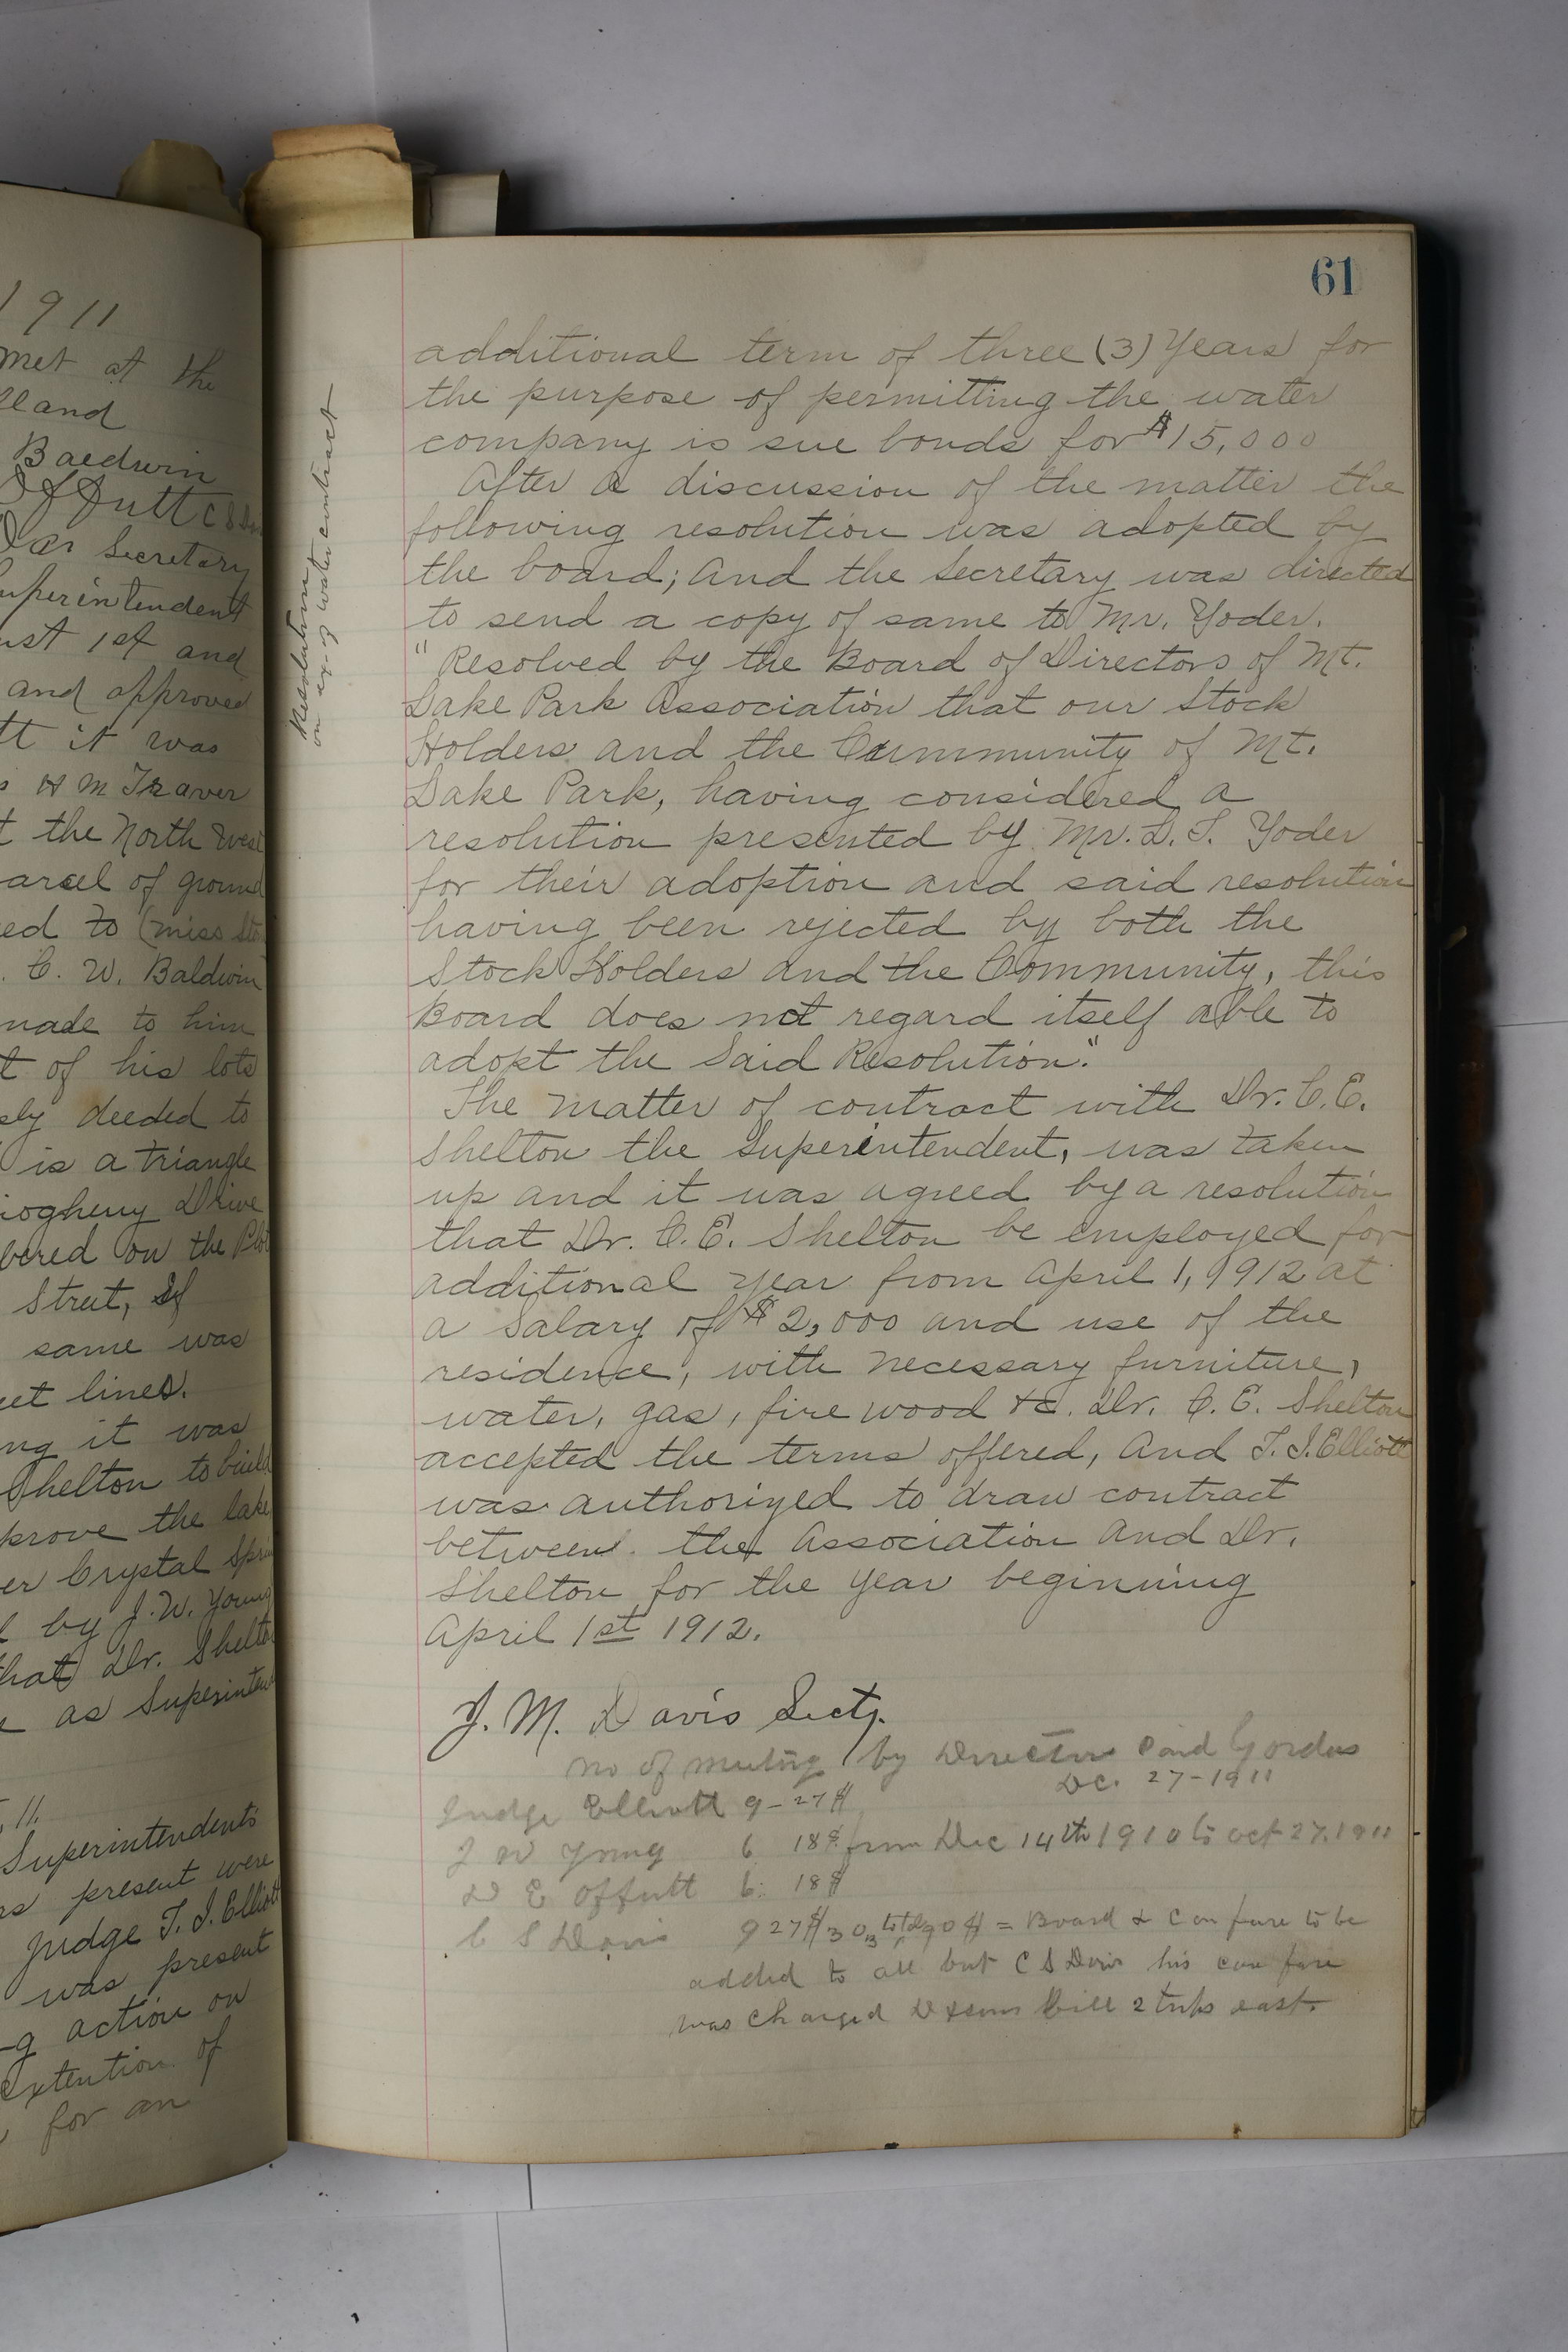 1911
met at the
land
Baldwin
Secretary
uperintendent
ust 1st and
and approved
tt it was
s H M Traver
t the North West
arcel of ground
ed to (miss
. C. W. Baldwin
made to him
t of his lots
sly deeded to
is a triangle
iogheny Drive
bered on the Plot
Street, If
same was
eet lines.
ng it was
Shelton to build
prove the lake
er Crystal Spring
by J. W. Young
that Dr. Shelton
as Superintend
, 11.
Superintendents
rs present were
Judge T. J. Elliott
was present
g action on
extention of
for an
Resolution
on ex- of water contract
61
additional term of three (3) Years for
the purpose of permitting the water
company is sue bonds for $15,000
After a discussion of the matter the
following resolution was adopted by
the board; And the Secretary was directed
to send a copy of same to Mr. Yoder.
"Resolved by the Board of Directors of Mt.
Lake Park Association that our Stock
Holders and the Cummunity of Mt.
Lake Park, having considered a
resolution presented by Mr. L. T. Yoder
for their adoption and said resolution
having been rejected by both the
Stock Holders and the Community, this
Board does not regard itself able to
adopt the Said Resolution."
The matter of contract with Dr. C. E.
Shelton the Superintendent, was taken
up and it was agreed by a resolution
that Dr. C. E. Shelton be employed for
additional year from April 1, 1912 at
a Salary of $2,000 and use of the
residence, with necessary furniture,
water, gas, fire wood &c. Dr. C. E. Shelton
accepted the terms offered, And T. J. Elliott
was authorized to draw contract
between the Association And Dr.
Shelton for the year beginning
April 1st 1912.
J. M. Davis Secty.
no of meeting by Directors Paid Gordas
Dc. 27-1911
Judge Elliott 9 - 27$
J W Young 6 18$ from Dec 14th 1910 to oct 27. 1911
D E Offutt 6: 18$
C S Davis 9 27$ 30 total 90$ = Board & Car fare to be
added to all but C S Davis his car fare
was charged bill 2 trips east.